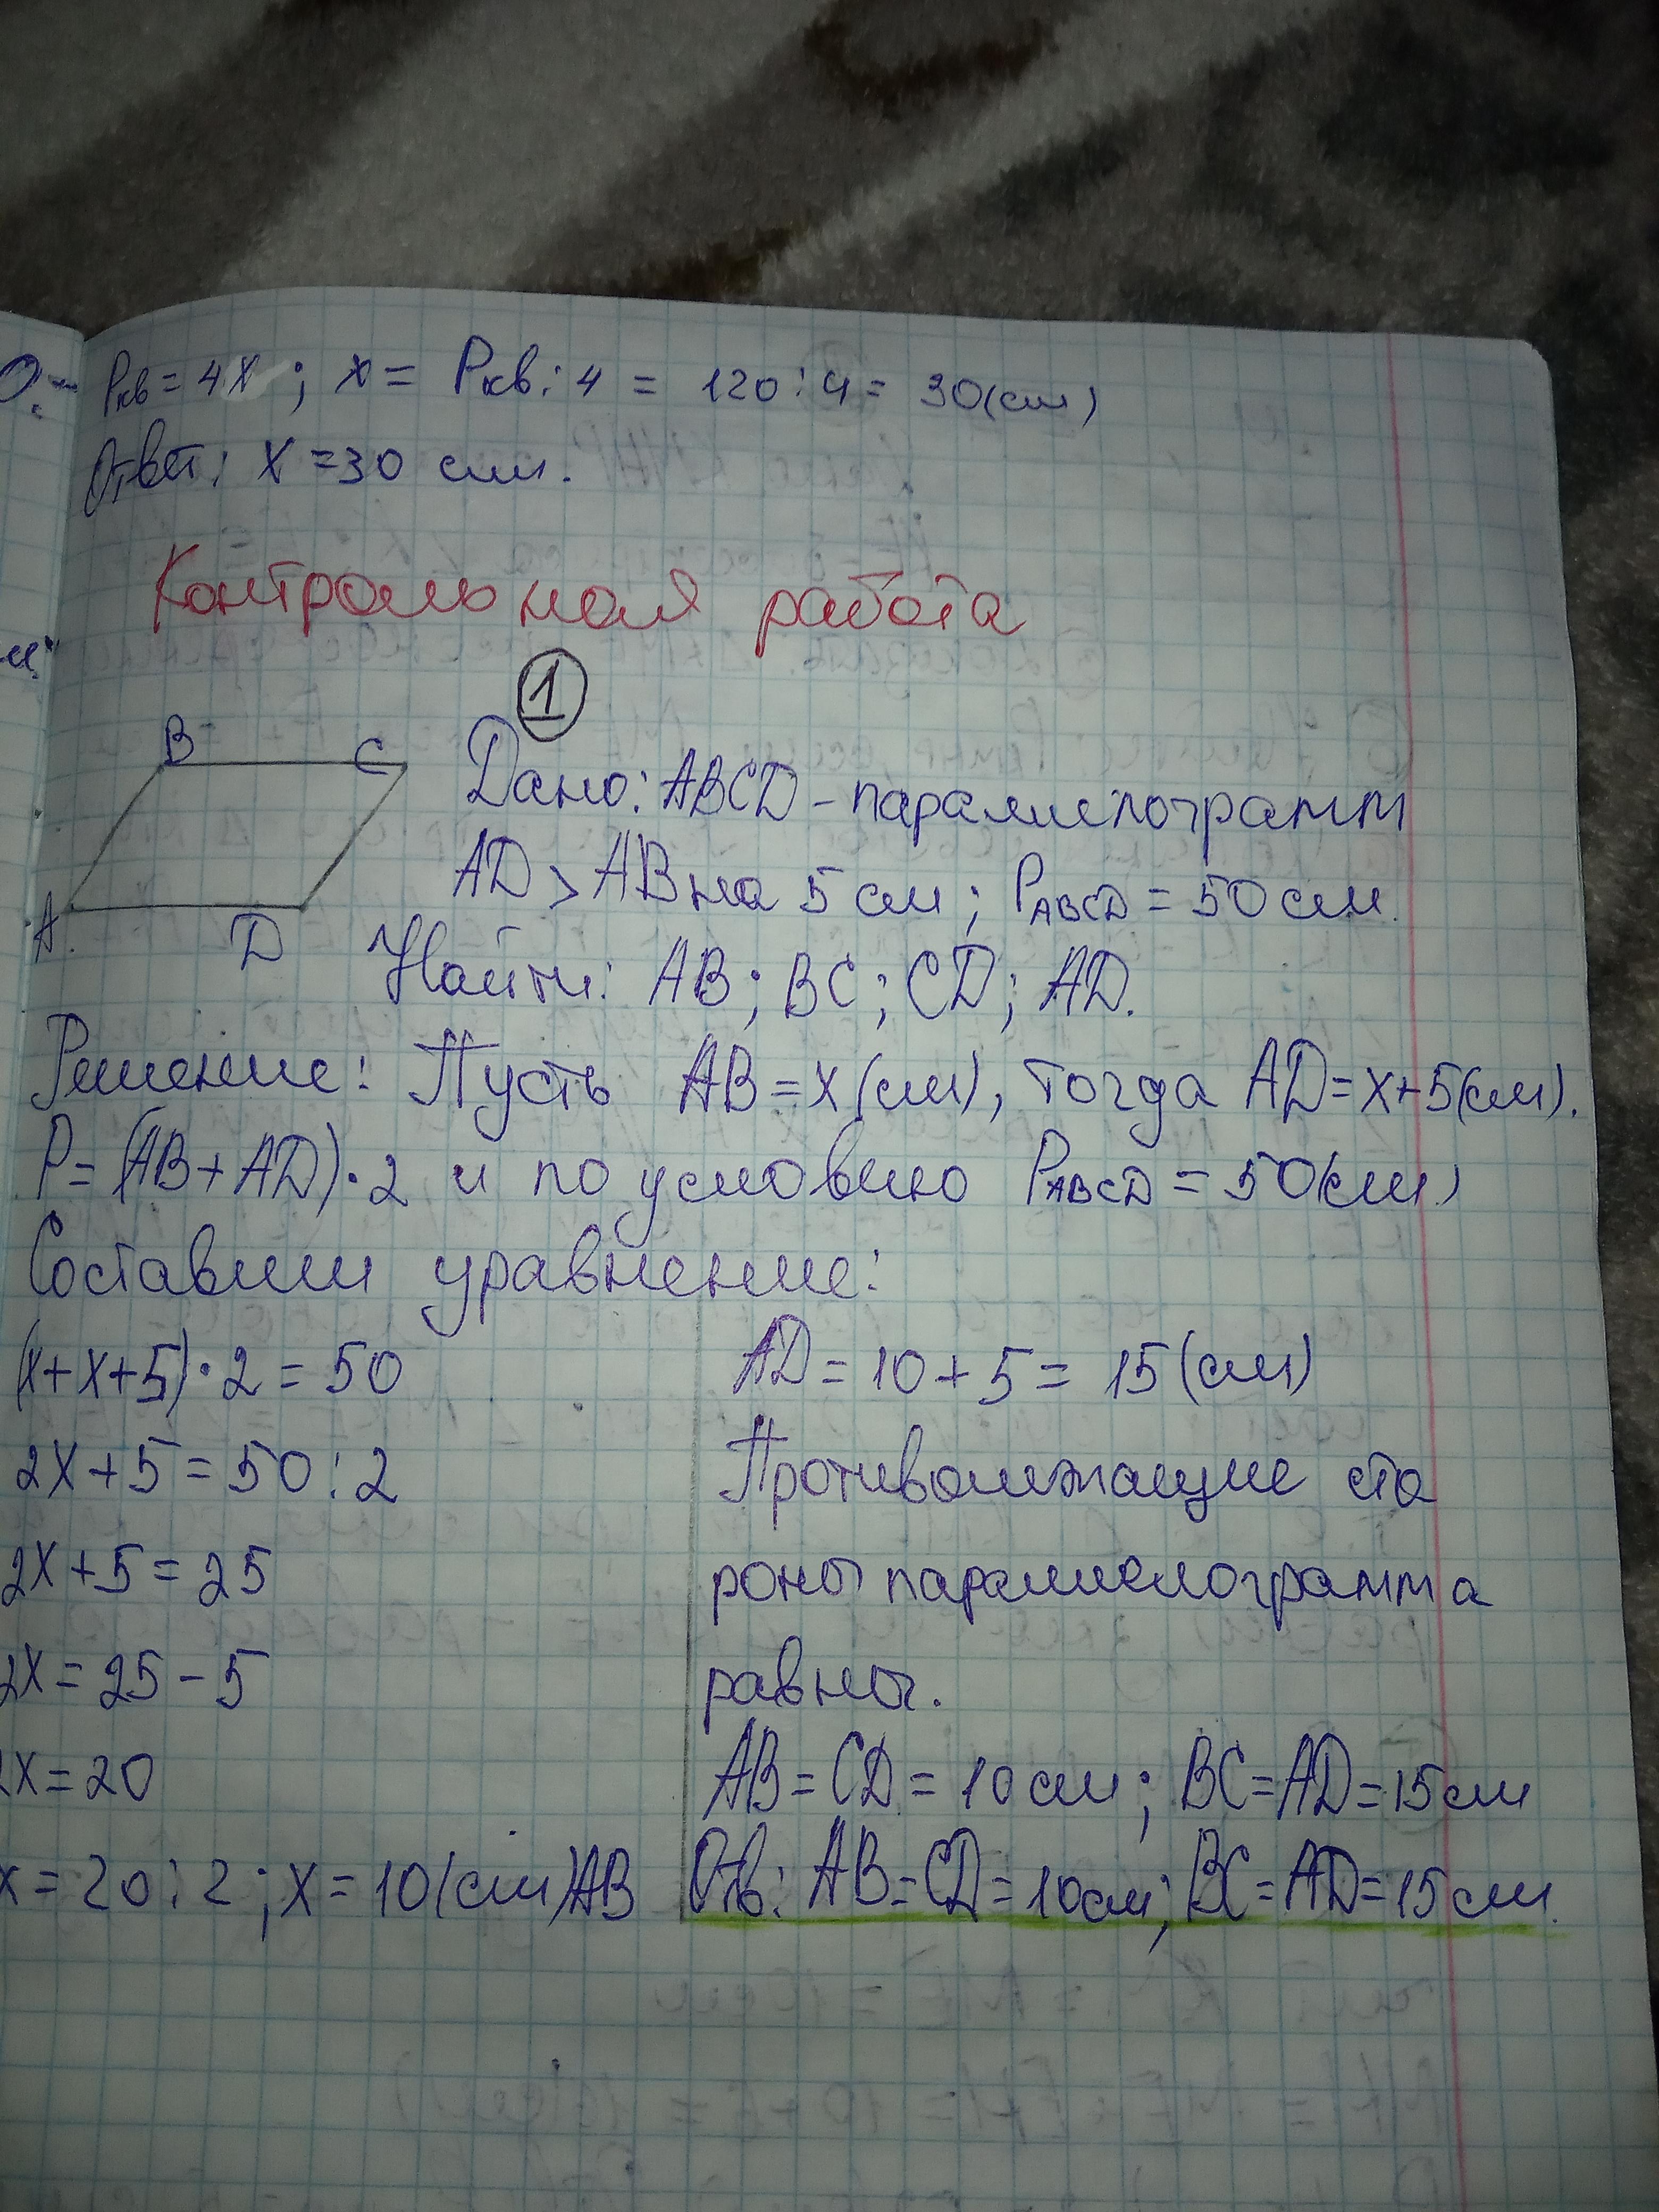 О:- Pкв = 4x ; x = Pкв : 4 = 120 : 4 = 30(см)
Ответ: x = 30 см.
Контрольная работа
1
B C
Дано: ABCD - параллелограмм
AD > AB на 5 см ; PABCD = 50 см.
A D
Найти: AB ; BC ; CD ; AD.
Решение: Пусть AB = x (см), тогда AD = x+5(см).
P = (AB + AD) · 2 и по условию PABCD = 50(см)
Составим уравнение:
(x + x + 5) · 2 = 50
2x + 5 = 50 : 2
2x + 5 = 25
2x = 25 - 5
2x = 20
x = 20 : 2 ; x = 10(см)AB
AD = 10 + 5 = 15 (см)
Противолежащие сто
роны параллелограмма
равны.
AB = CD = 10 см ; BC = AD = 15 см
Отв: AB = CD = 10 см ; BC = AD = 15 см.